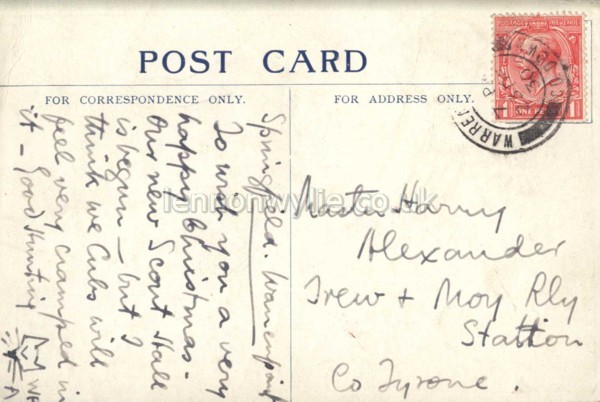 POST CARD
FOR CORRESPONDENCE ONLY.
FOR ADDRESS ONLY.
Springfield. Warrenpoint
To wish you a very
happy Christmas.
Our new Scout Hall
is begun – but I
think we Cubs will
feel very cramped in
it – Good Hunting
Master Harry
Alexander
Trew & Moy Rly
Station
Co Tyrone.
ONE PENNY
1
1
WARREN
lennonwylie.co.uk